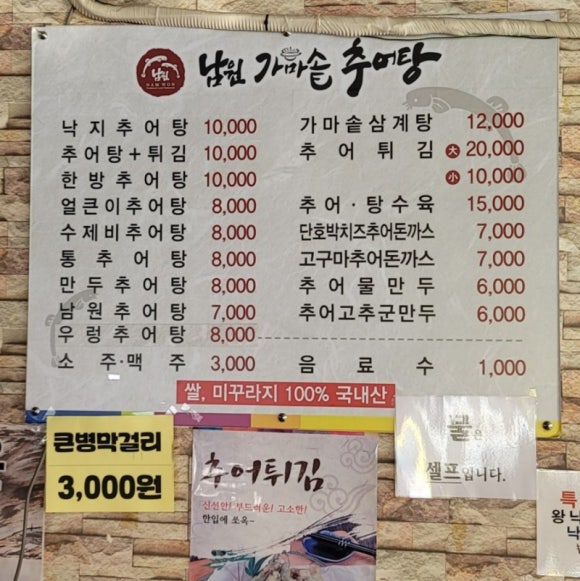 남원 NAM WON 남원 가마솥 추어탕
낙지추어탕 10,000
추어탕+튀김 10,000
한방추어탕 10,000
얼큰이추어탕 8,000
수제비추어탕 8,000
통추어탕 8,000
만두추어탕 8,000
남원추어탕 7,000
우렁추어탕 8,000
소주·맥주 3,000
가마솥삼계탕 12,000
추어튀김 大 20,000
小 10,000
추어·탕수육 15,000
단호박치즈추어돈까스 7,000
고구마추어돈까스 7,000
추어물만두 6,000
추어고추군만두 6,000
음료수 1,000
쌀, 미꾸라지 100% 국내산
큰병막걸리
3,000원
추어튀김
신선한! 부드러운! 고소한!
한입에 쏘옥~
물은
셀프입니다.
특
왕낙
낙